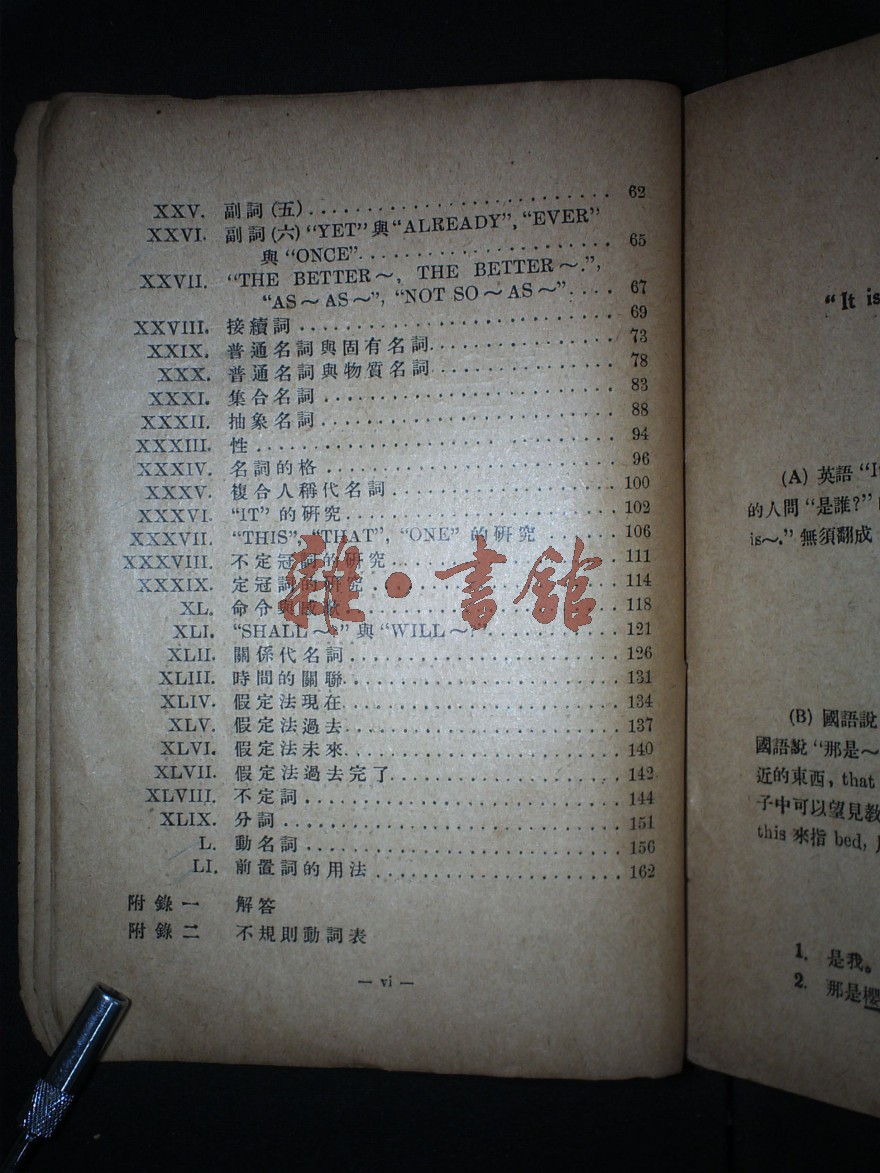 XXV. 副詞(五) 62
XXVI. 副詞(六)“YET”與“ALREADY”,“EVER”
與“ONCE” 65
XXVII. “THE BETTER～, THE BETTER～.”,
“AS～AS～”, “NOT SO～AS～” 67
XXVIII. 接續詞 69
XXIX. 普通名詞與固有名詞 73
XXX. 普通名詞與物質名詞 78
XXXI. 集合名詞 83
XXXII. 抽象名詞 88
XXXIII. 性 94
XXXIV. 名詞的格 96
XXXV. 複合人稱代名詞 100
XXXVI. “IT” 的研究 102
XXXVII. “THIS”, “THAT”, “ONE” 的研究 106
XXXVIII. 不定冠詞的研究 111
XXXIX. 定冠詞的研究 114
XL. 命令與感歎 118
XLI. “SHALL～?” 與 “WILL～?” 121
XLII. 關係代名詞 126
XLIII. 時間的關聯 131
XLIV. 假定法現在 134
XLV. 假定法過去 137
XLVI. 假定法未來 140
XLVII. 假定法過去完了 142
XLVIII. 不定詞 144
XLIX. 分詞 151
L. 動名詞 156
LI. 前置詞的用法 162
附錄一 解答
附錄二 不規則動詞表
— vi —
雜·書館
“It is
(A) 英語
的人問“是誰?”
is～.” 無須翻成
(B) 國語說
國語說 “那是～
近的東西, that
子中可以望見教
this 來指 bed,
1. 是我。
2. 那是櫻